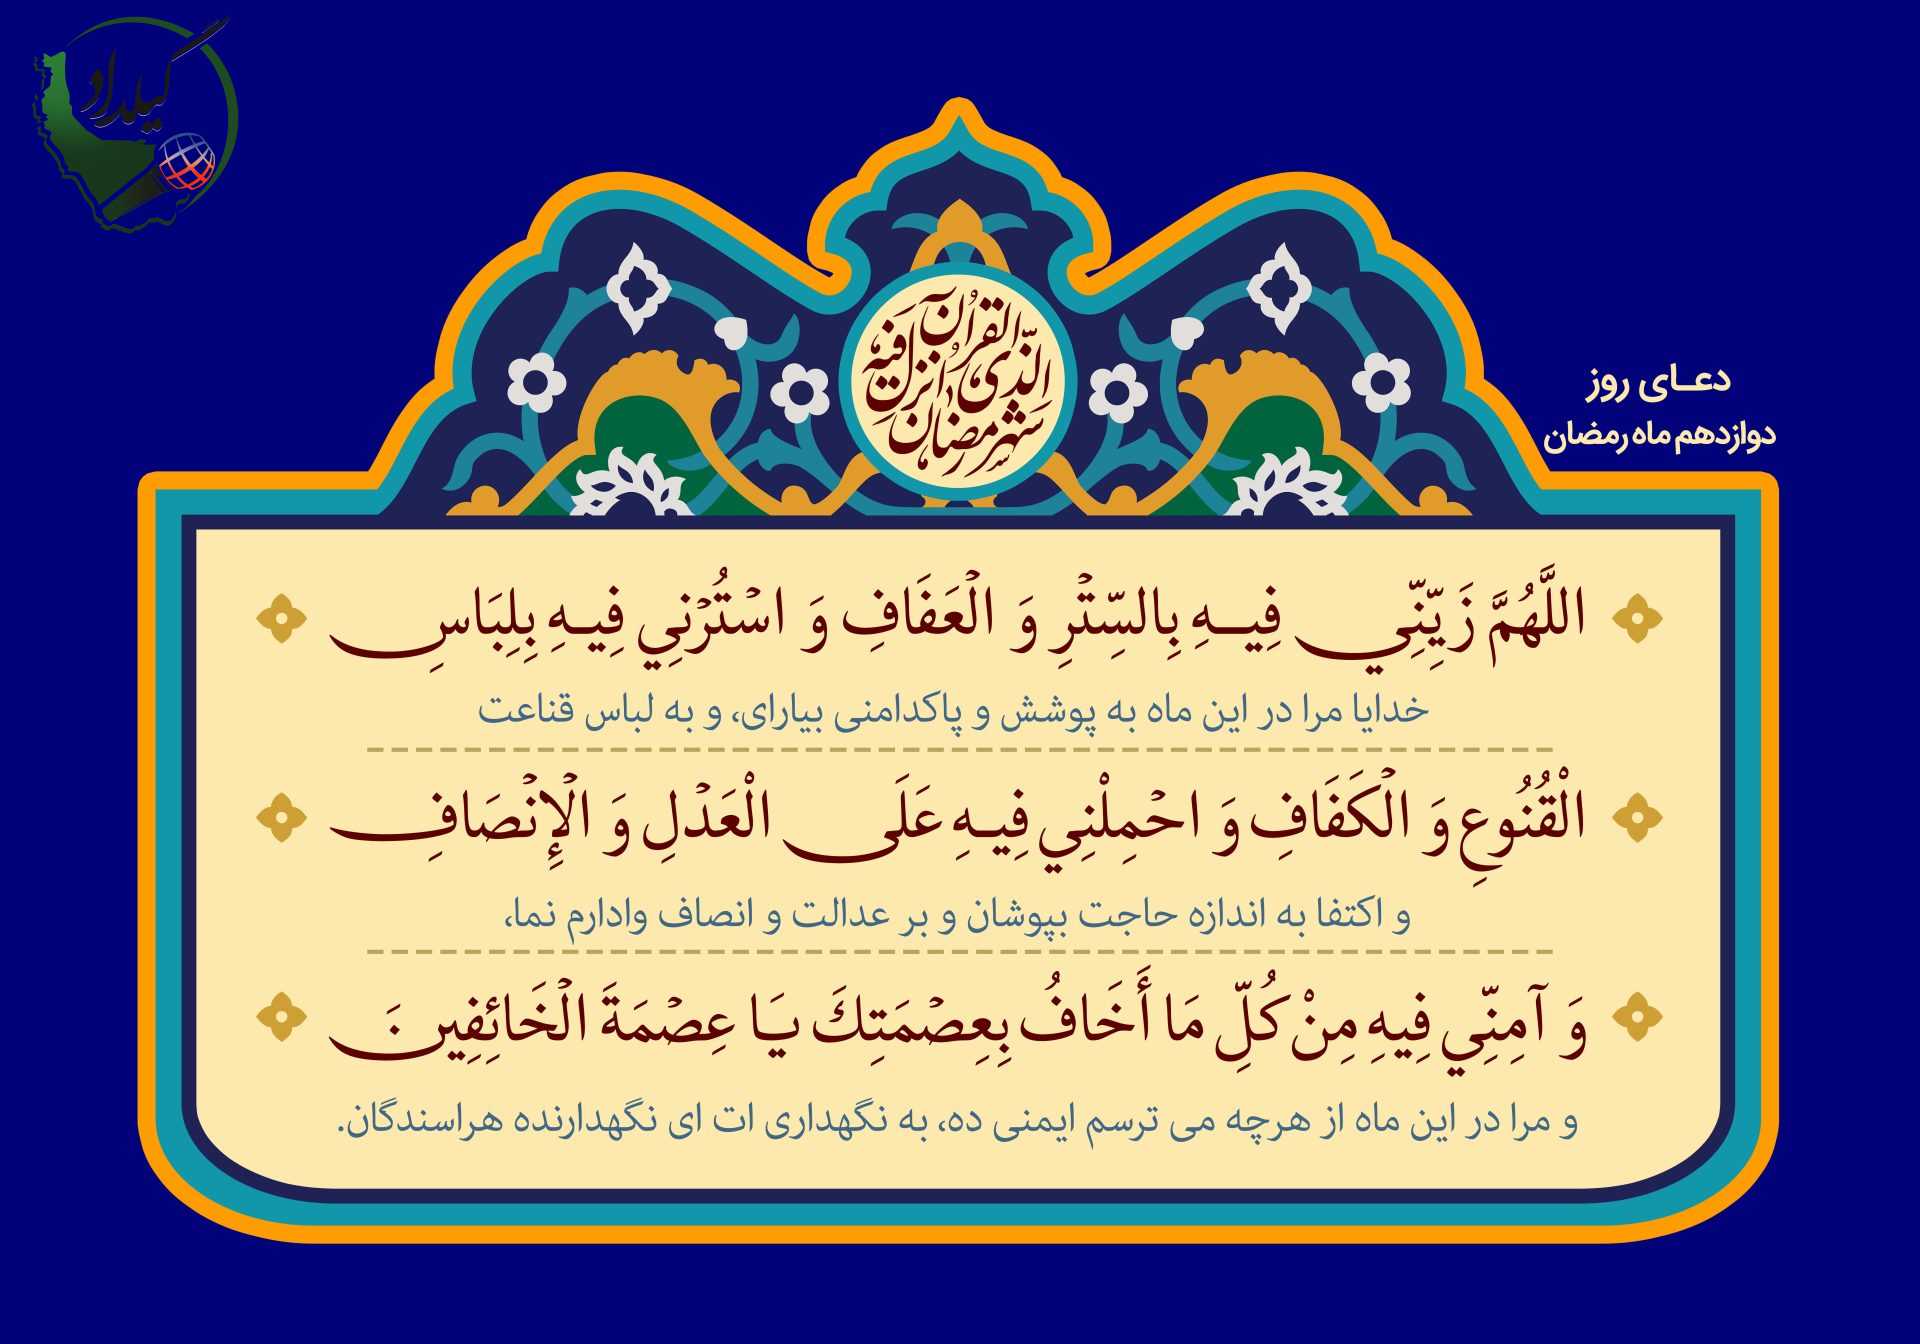 گیلداد
شهر رمضان الذی انزل فیه القرآن
دعای روز
دوازدهم ماه رمضان
اللَّهُمَّ زَيِّنِّي فِيهِ بِالسِّتْرِ وَ الْعَفَافِ وَ اسْتُرْنِي فِيهِ بِلِبَاسِ
خدایا مرا در این ماه به پوشش و پاکدامنی بیارای، و به لباس قناعت
الْقُنُوعِ وَ الْكَفَافِ وَ احْمِلْنِي فِيهِ عَلَى الْعَدْلِ وَ الْإِنْصَافِ
و اکتفا به اندازه حاجت بپوشان و بر عدالت و انصاف وادارم نما،
وَ آمِنِّي فِيهِ مِنْ كُلِّ مَا أَخَافُ بِعِصْمَتِكَ يَا عِصْمَةَ الْخَائِفِينَ.
و مرا در این ماه از هرچه می ترسم ایمنی ده، به نگهداری ات ای نگهدارنده هراسندگان.